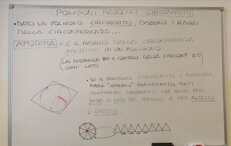 POLIGONI REGOLARI CIRCOSCRITTI
• DATO UN POLIGONO CIRCOSCRITTO, DISEGNO I RAGGI
DELLA CIRCONFERENZA...
APOTEMA = È IL RAGGIO DELLA CIRCONFERENZA
INSCRITTA IN UN POLIGONO
(LA DISTANZA DA IL CENTRO DELLA CIRCONF.
OGNI LATO
• SE IL POLIGONO CIRCOSCRITTO È REGOLARE
POSSO "APRIRLO" OTTENENDO TANTI
TRIANGOLI CHE HANNO PER
BASE IL LATO DEL POLIGONO E PER ALTEZZA
L'APOTEMA